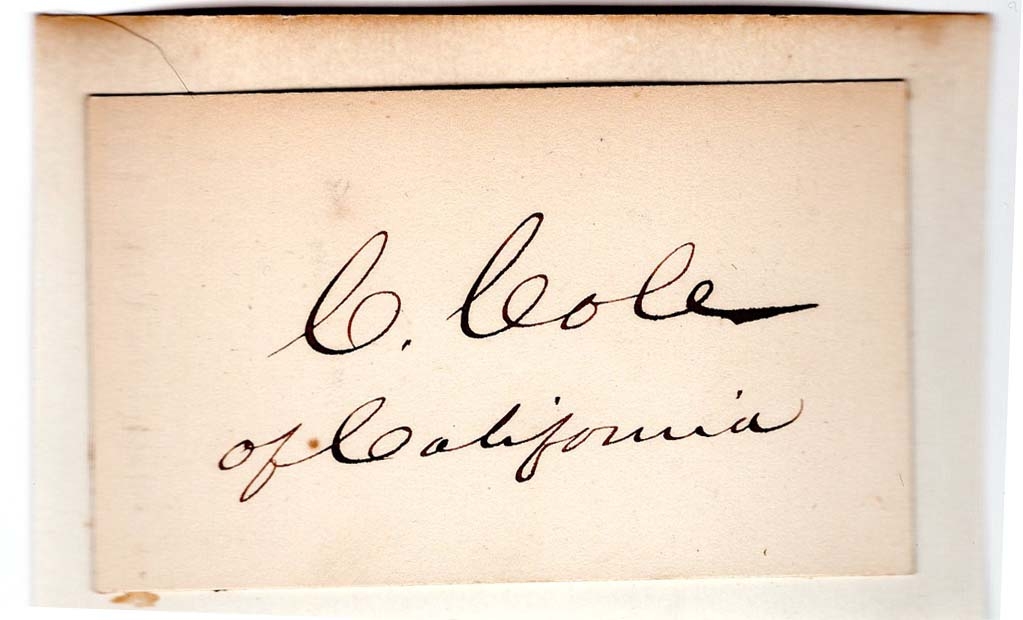 C. Cole
of California